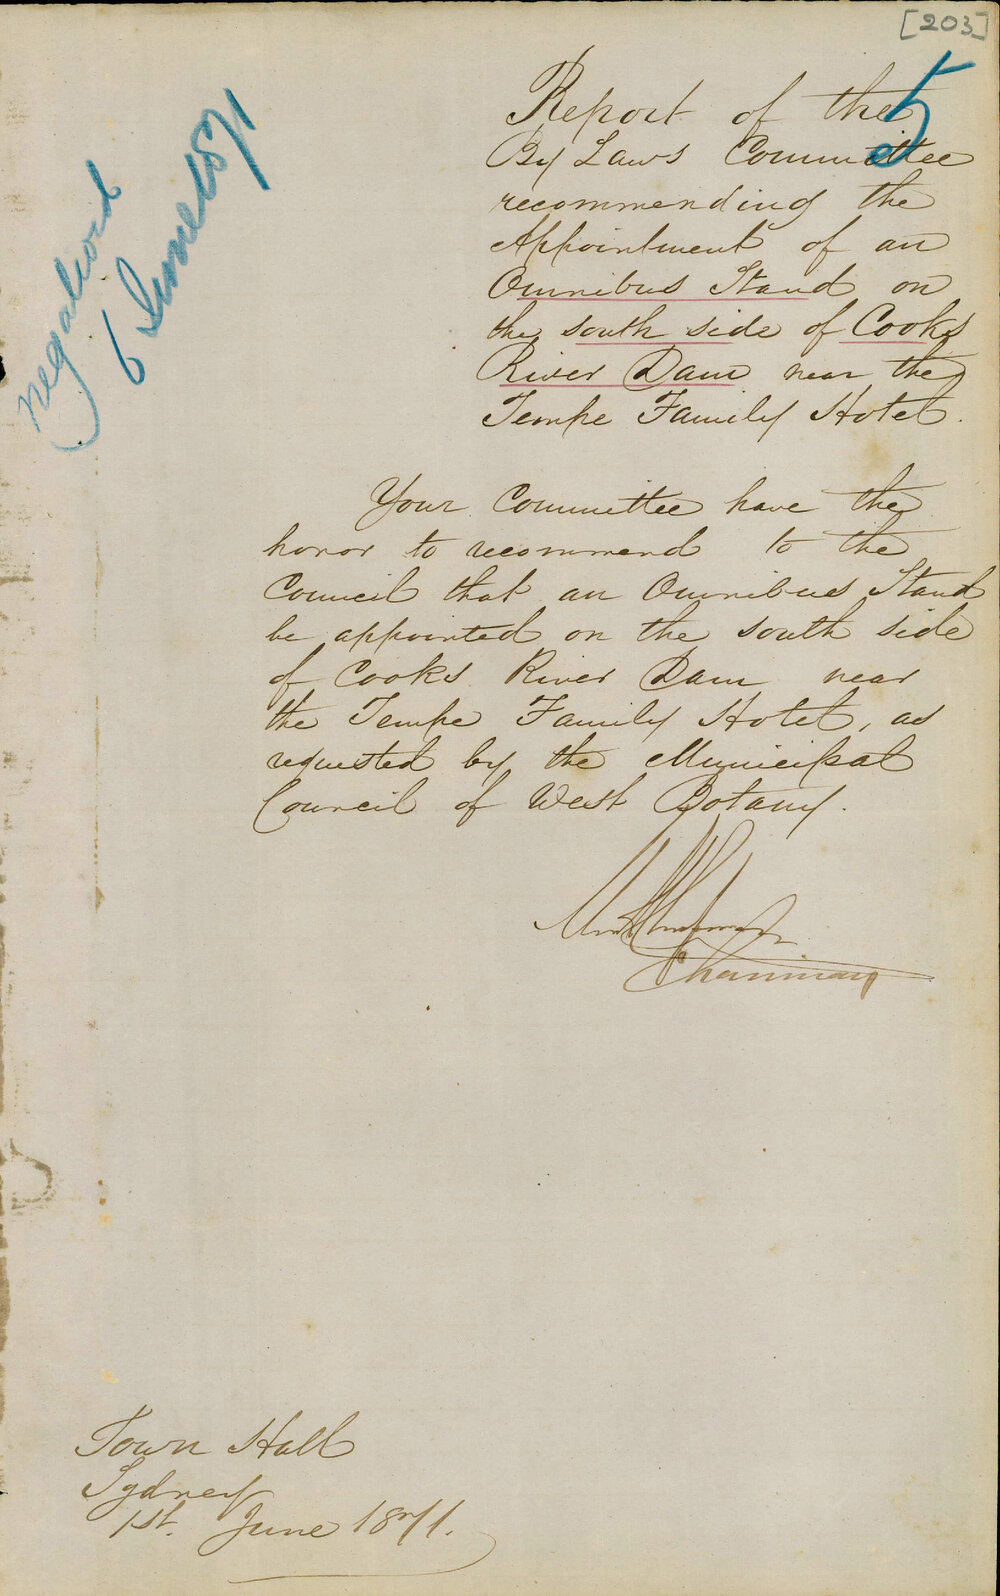 [203]
5
negatived
6 June 1871
Report of the
By Laws Committee
recommending the
Appointment of an
Omnibus Stand on
the south side of Cooks
River Dam near the
Tempe Family Hotel.
Your Committee have the
honor to recommend to the
Council that an Omnibus Stand
be appointed on the south side
of Cooks River Dam near
the Tempe Family Hotel, as
requested by the Municipal
Council of West Botany.
Chairman
Town Hall
Sydney
1st. June 1871.